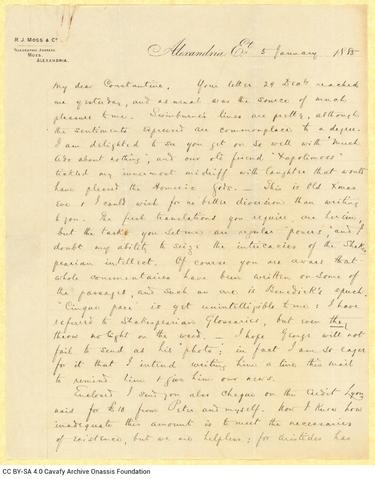 R. J. MOSS & Co.
TELEGRAPHIC ADDRESS
MOSS
ALEXANDRIA.
Alexandria Et. 5 January 1885
My dear Constantine, Your letter 29 Decb. reached
me yesterday, and as usual was the source of much
pleasure to me. Swinburne's lines are pretty, although
the sentiments expressed are commonplace to a degree.
I am delighted to see you get on so well with "Much
Ado about nothing", and our old friend
tickled my innermost midriff with laughter that would
have pleased the Homeric Gods. — This is Old Xmas
Eve & I could wish for no better diversion than writing
to you. The full translations you require are herein,
but the tasks you set me are regular and I
doubt my ability to seize the intricacies of the Shakes-
pearian intellect. Of course you are aware that
whole commentaries have been written on some of
the passages, and such an one is Benedick's speech.
"Cinque pace" is yet unintelligible to me: I have
referred to Shakespearian Glossaries, but even they
throw no light on the word. — I hope George will not
fail to send us his photo; in fact I am so eager
for it that I intend writing him a line this mail
to remind him & give him our news.
Enclosed I send you also cheque on the Crédit Lyon
nais for £10 from Peter and myself. Now I know how
inadequate this amount is to meet the necessaries
of existence, but we are helpless; for Aristides has
CC BY-SA 4.0 Cavafy Archive Onassis Foundation